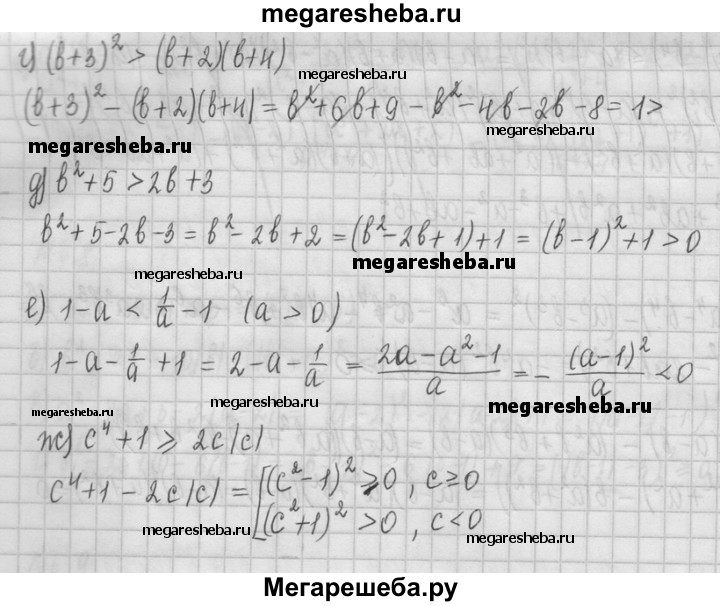 megaresheba.ru
г) (в+3)² > (в+2)(в+4)
megaresheba.ru
(в+3)² - (в+2)(в+4) = в²+6в+9 - в² - 4в - 2в - 8 = 1 >
megaresheba.ru
megaresheba.ru
д) в²+5 > 2в+3
в²+5-2в-3 = в²-2в+2 = (в²-2в+1)+1 = (в-1)²+1 > 0
megaresheba.ru
megaresheba.ru
е) 1-a < 1/a - 1 (a > 0)
1-a-1/a+1 = 2-a-1/a = (2a-a²-1)/a = - (a-1)²/a < 0
megaresheba.ru
megaresheba.ru
megaresheba.ru
ж) c⁴+1 ⩾ 2c|c|
c⁴+1-2c|c| = [(c²-1)² ⩾ 0, c ≥ 0
megaresheba.ru
[(c²+1)² > 0, c < 0
megaresheba.ru
Мегарешеба.ру